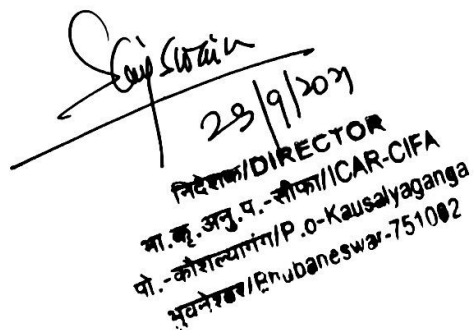 Swain
29/9/2021
निदेशक/DIRECTOR
भा.कृ.अनु.प.-सीफा/ICAR-CIFA
पो.-कौशल्यागंगा/P.o-Kausalyaganga
भुवनेश्वर/Bhubaneswar-751002